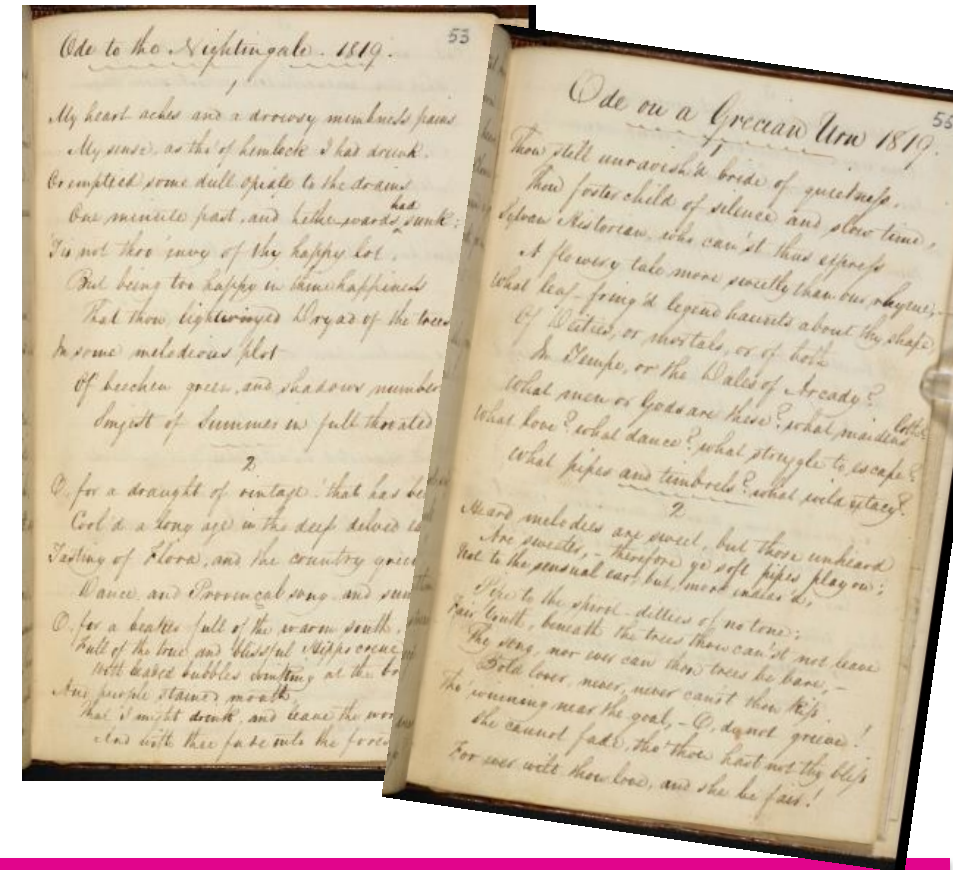 53
Ode to the Nightingale. 1819.
1
My heart aches and a drowsy numbness pains
My sense, as tho' of hemlock I had drunk.
Or emptied some dull opiate to the drains
One minute past, and Lethe-wards had sunk:
'Tis not thro' envy of thy happy lot,
But being too happy in thine happiness
That thou, light winged Dryad of the trees
In some melodious plot
Of beechen green, and shadows number
Singest of Summer in full throated
2
O, for a draught of vintage! that has be
Cool'd a long age in the deep delved
Tasting of Flora, and the country green
Dance, and Provinçal song and sun
O, for a beaker full of the warm south,
Full of the true and blissful Hippocrene
With beaded bubbles winking at the br
And purple stained mouth
That I might drink, and leave the wor
And with thee fade into the fores
55
Ode on a Grecian Urn 1819.
1
Thou still unravish'd bride of quietness,
Thou foster child of silence and slow time,
Sylvan Historian, who can'st thus express
A flowery tale more sweetly than our rhyme,
What leaf-fring'd legend haunts about thy shape
Of Deities, or mortals, or of both
In Tempe, or the Dales of Arcady?
What men or Gods are these? what maidens loth?
What love? what dance? what struggle to escape?
What pipes and timbrels? what wild extacy?
2
Heard melodies are sweet, but those unheard
Are sweeter, - therefore ye soft pipes play on;
Not to the sensual ear, but, more endear'd,
Pipe to the spirit ditties of no tone;
Fair Youth, beneath the trees thou can'st not leave
Thy song, nor ever can those trees be bare, -
Bold lover, never, never canst thou kiss
Tho' winning near the goal, - O, do not grieve!
She cannot fade, tho' thou hast not thy bliss
For ever wilt thou love, and she be fair!